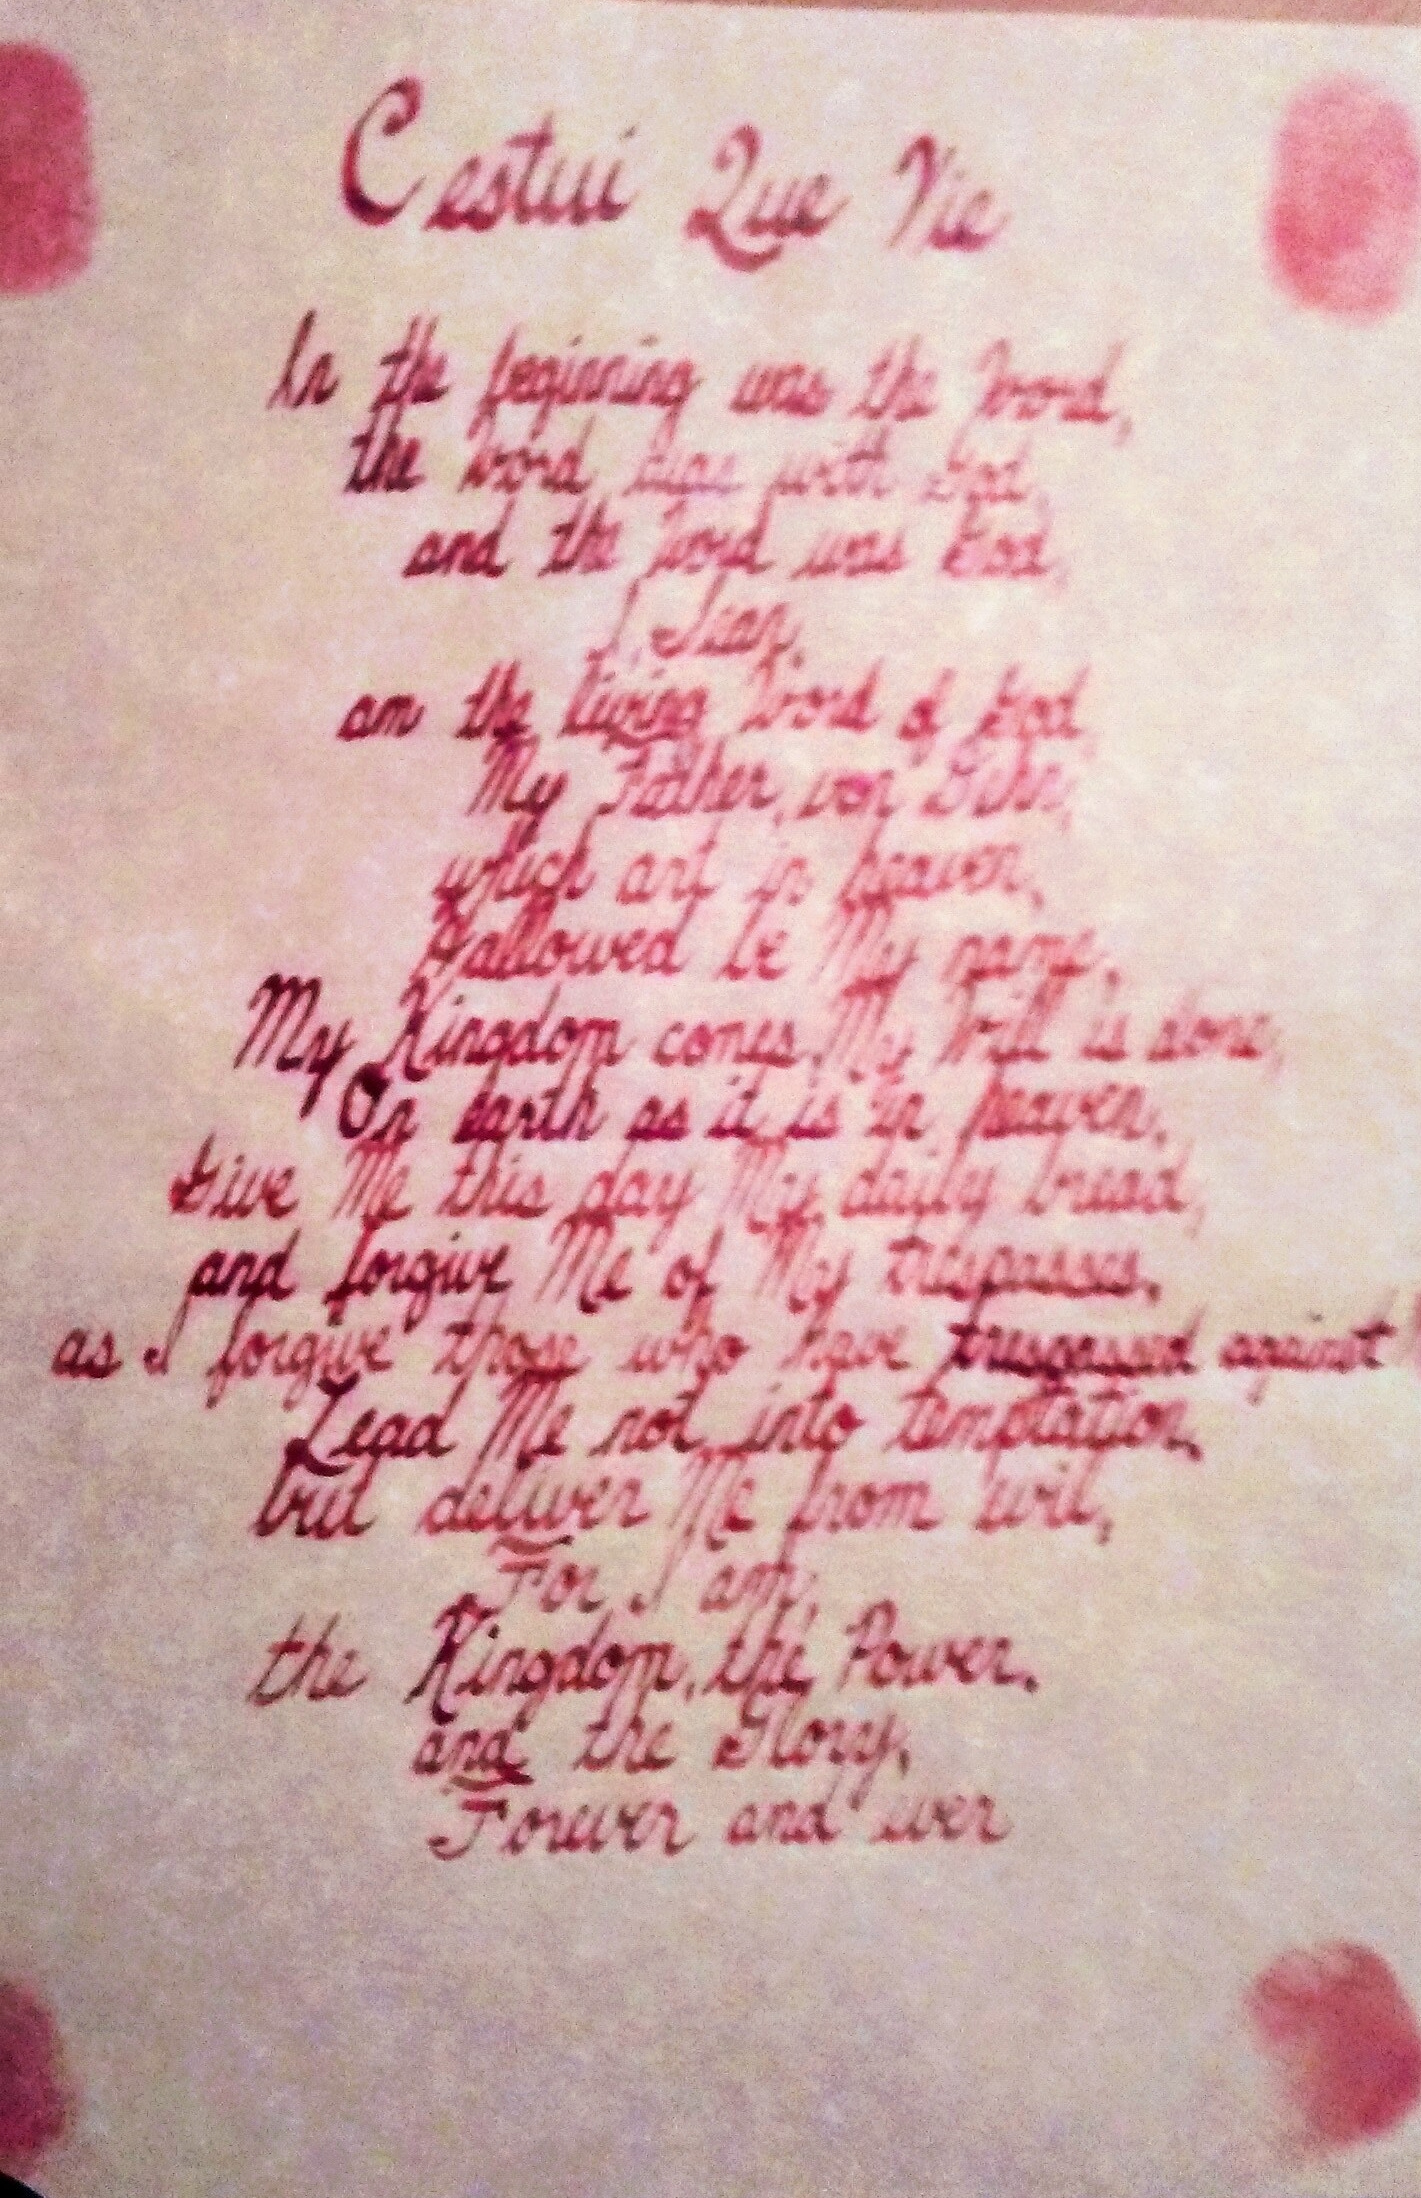 Cestui Que Vie
In the beginning was the Word,
the Word was with God,
and the Word was God,
I,
am the living Word of God,
My Father, von
which art in heaven,
Hallowed be My name,
My Kingdom comes, My Will is done,
On earth as it is in heaven.
Give Me this day My daily bread,
and forgive Me of My trespasses,
as I forgive those who have trespassed against
Lead Me not into temptation,
but deliver Me from evil,
For I am,
the Kingdom, the Power,
and the Glory,
Forever and ever